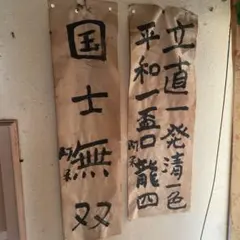 立直一発清一色
平和一盃口龍四
国士無双